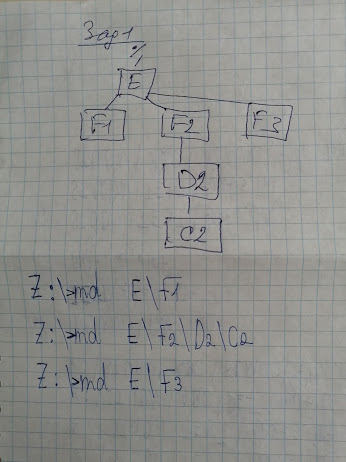 Зад1
%
E
F1 F2 F3
D2
C2
Z:\>md E\F1
Z:\>md E\F2\D2\C2
Z:\>md E\F3